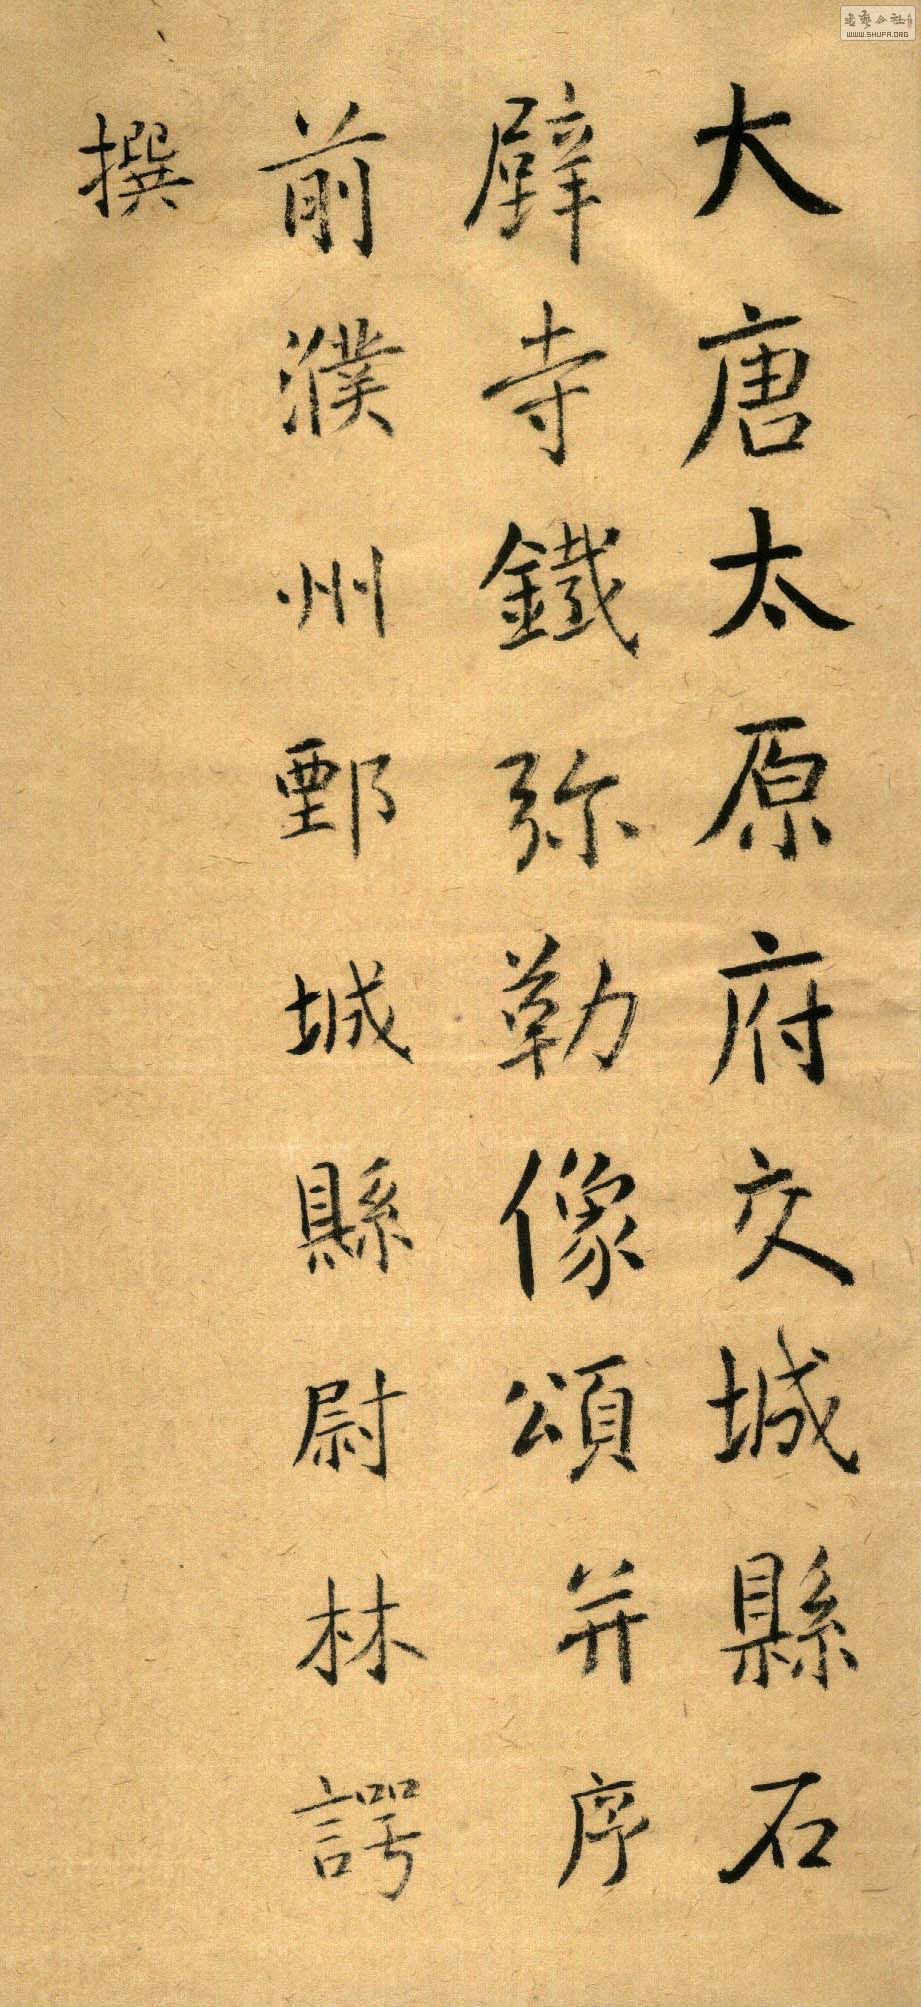 大唐太原府交城縣石
壁寺鐵弥勒像頌并序
前濮州鄄城縣尉林諤
撰
書藝公社
WWW.SHUFA.ORG